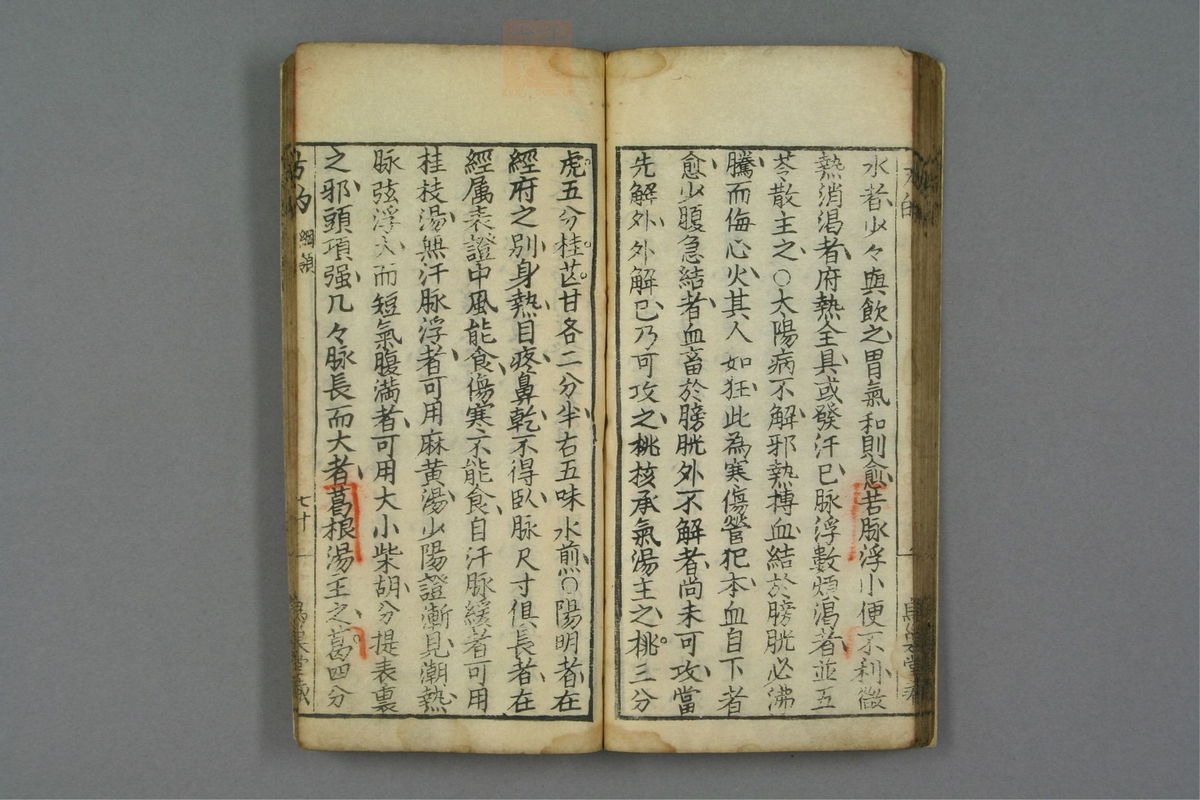 水者少々與飲之胃氣和則愈若脉浮小便不利微
熱消渴者府熱全具或發汗已脉浮數煩渴者並五
苓散主之○太陽病不解邪熱摶血結於膀胱必沸
騰而侮心火其人如狂此為寒傷營犯本血自下者
愈少腹急結者血畜於膀胱外不解者尚未可攻當
先解外外解已乃可攻之桃核承氣湯主之桃三分
虎五分桂芒甘各二分半右五味水煎○陽明者在
經府之別身熱目疼鼻乾不得臥脉尺寸俱長者在
經属表證中風能食傷寒不能食自汗脉緩者可用
桂枝湯無汗脉浮者可用麻黄湯少陽證漸見潮熱
脉弦浮大而短氣腹満者可用大小柴胡分提表裏
之邪頭項强几々脉長而大者葛根湯主之葛四分
方的 綱領
七十